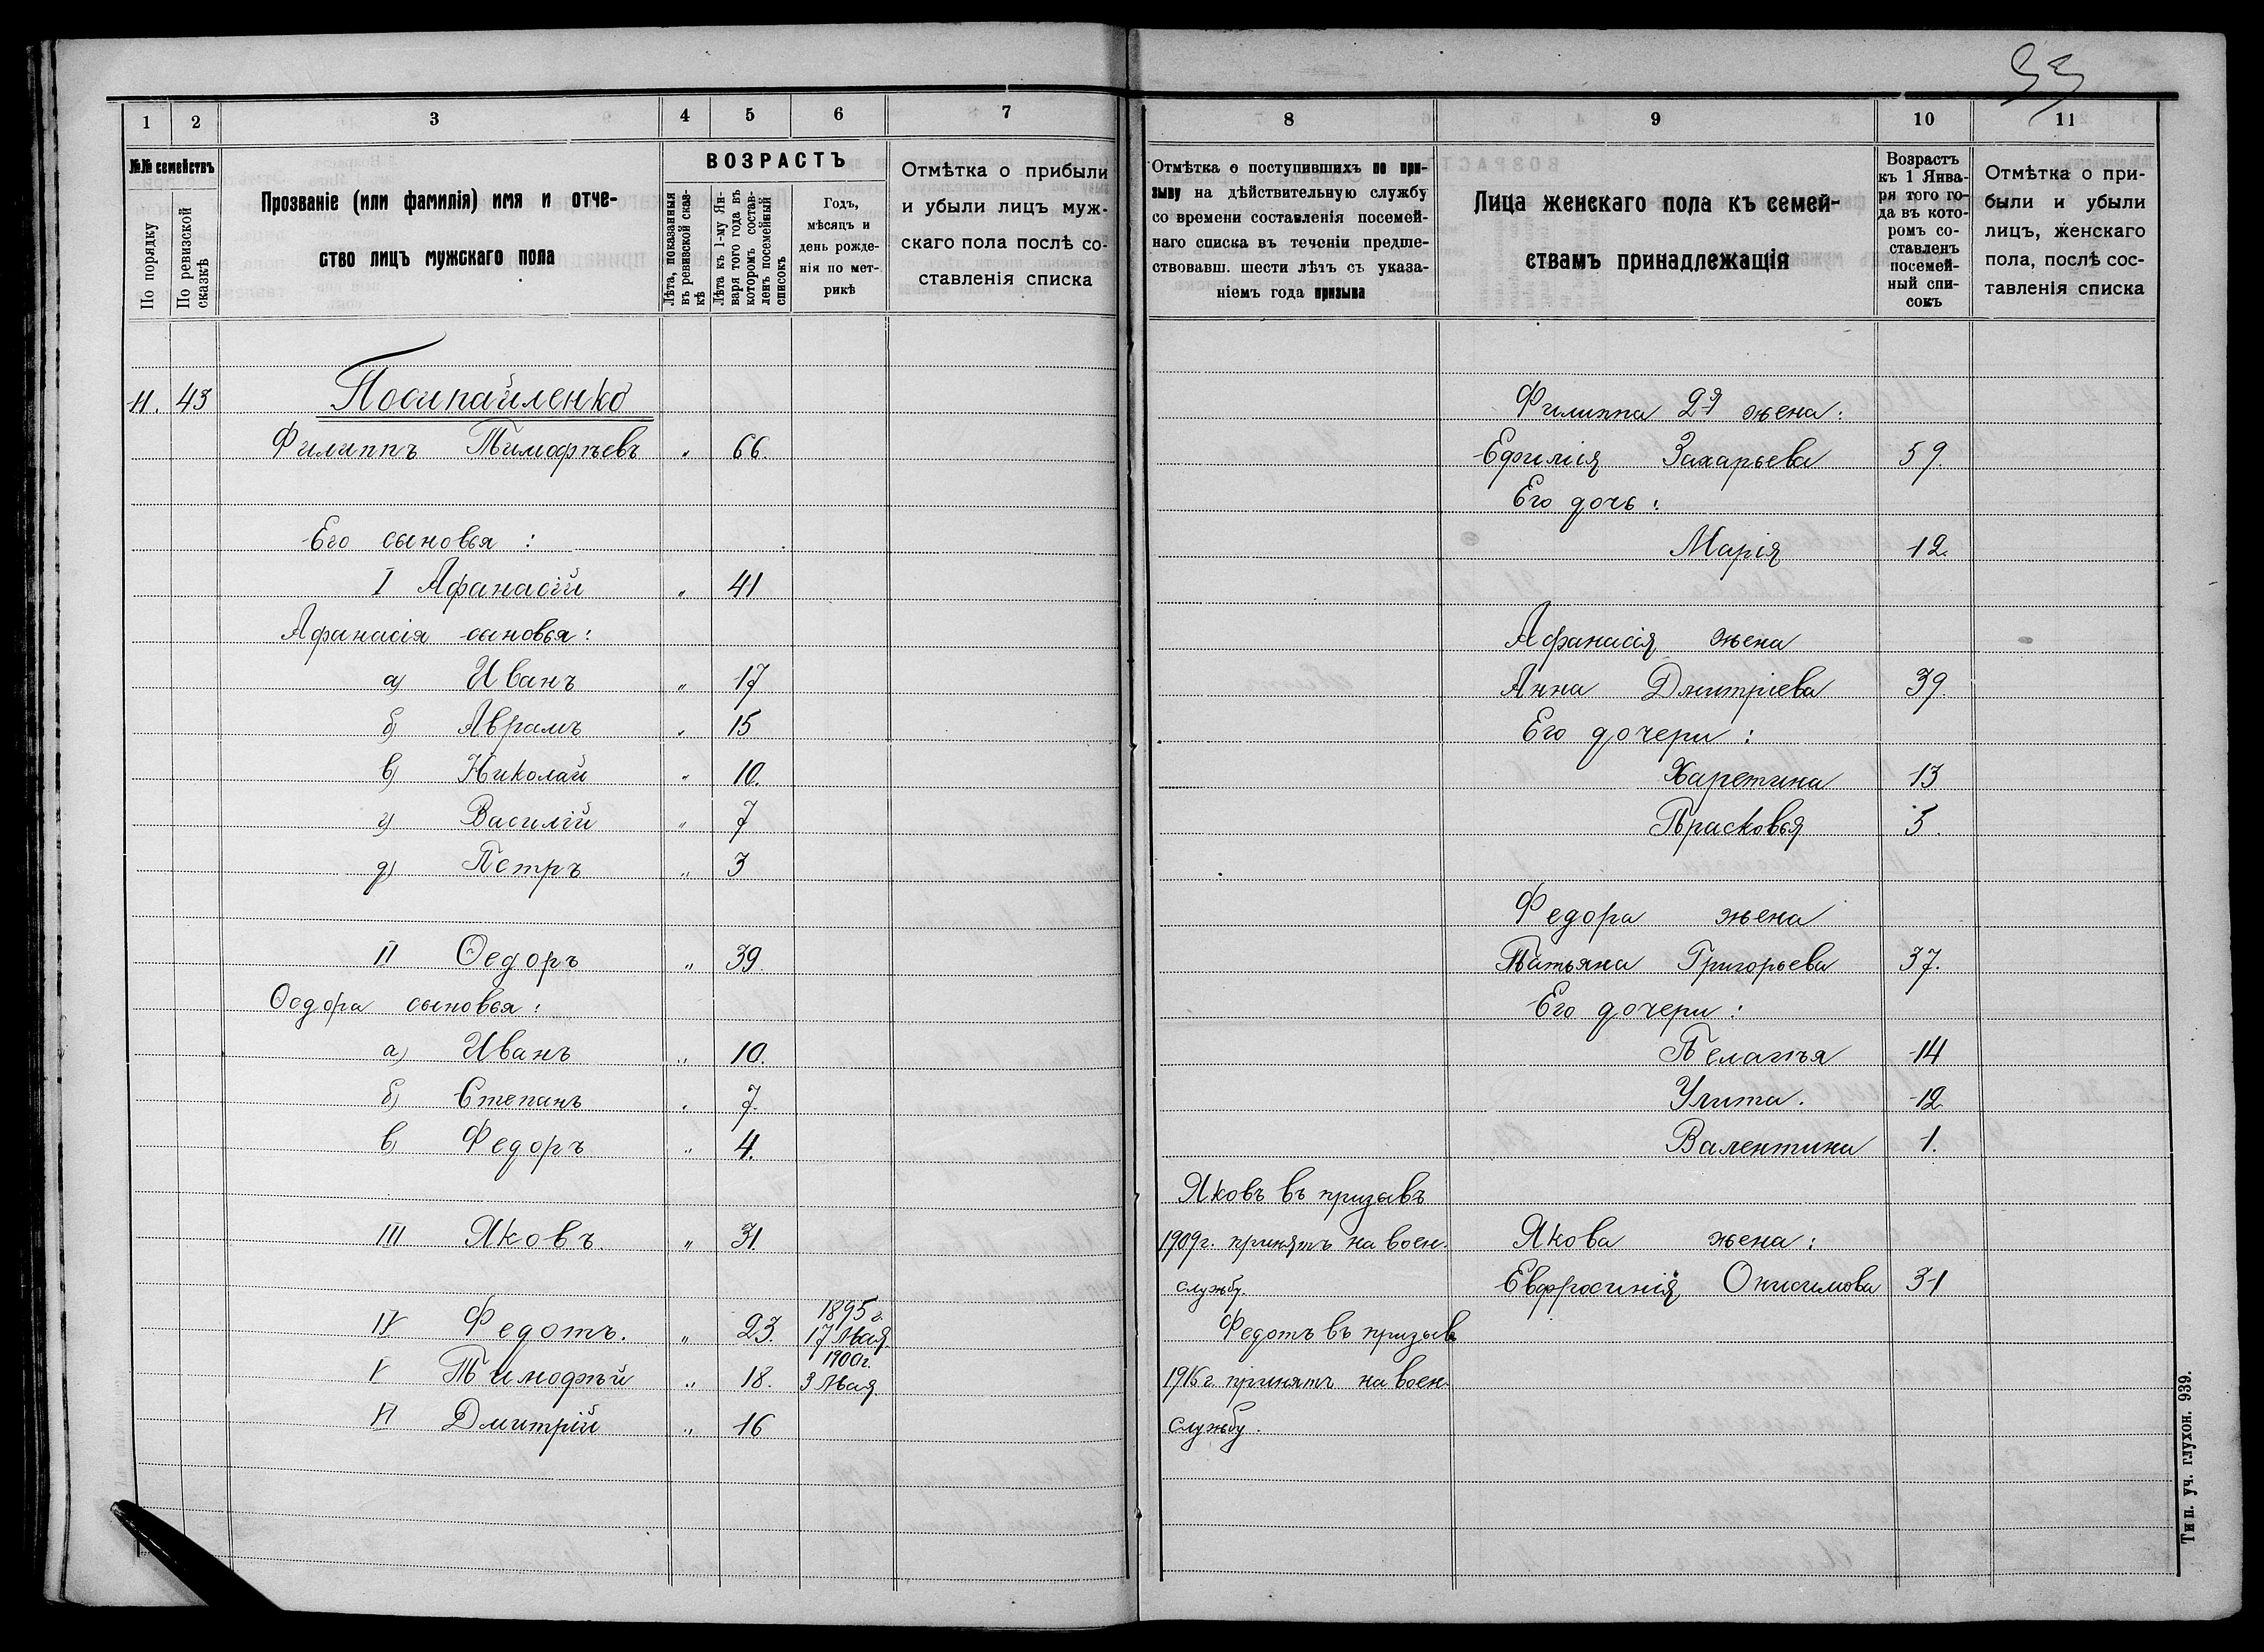 33
1 2 3 4 5 6 7
№№ семействъ
По порядку
По ревизской сказкѣ
Прозваніе (или фамилія) имя и отче-
ство лицъ мужскаго пола
ВОЗРАСТЪ
Лѣта, показанныя въ ревизской сказ-кѣ
Лѣта къ 1-му Ян-варя того года въ которомъ состав-ленъ посемейный списокъ
Годъ,
мѣсяцъ и
день рожде-
нія по мет-
рикѣ
Отмѣтка о прибыли
и убыли лицъ муж-
скаго пола послѣ со-
ставленія списка
11. 43 Посипайленко
Филиппъ Тимофѣевъ „ 66.
Его сыновья :
I Афанасій „ 41
Афанасія сыновья :
а) Иванъ „ 17
б) Аврамъ „ 15
в) Николай „ 10.
г) Василій „ 7
д) Петръ „ 3
II Ѳедоръ „ 39.
Ѳедора сыновья :
а) Иванъ „ 10.
б) Степанъ „ 7.
в) Федоръ „ 4.
III Яковъ. „ 31.
1895 г.
IV Федотъ. „ 23. 17 Мая.
1900 г.
V Тимофѣй „ 18. 3 Мая.
VI Дмитрій „ 16
8 9 10 11
Отмѣтка о поступившихъ по при-
зыву на дѣйствительную службу
со времени составленія посемей-
наго списка въ теченіи предше-
ствовавш. шести лѣтъ съ указа-
ніемъ года призыва
Лица женскаго пола къ семей-
ствамъ принадлежащія
Возрастъ
къ 1 Янва-
ря того го-
да въ кото-
ромъ со-
ставленъ
посемей-
ный спи-
сокъ
Отмѣтка о при-
были и убыли
лицъ, женскаго
пола, послѣ сос-
тавленія списка
Филиппа 2я жена :
Ефилія Захарьева 59.
Его дочь :
Марія 12.
Афанасія жена
Анна Дмитріева 39.
Его дочери :
Харетина 13
Прасковья 5.
Федора жена
Татьяна Григорьева 37.
Его дочери :
Пелагія 14
Улита. 12.
Валентина 1.
Яковъ въ призывъ
1909 г. принятъ на воен. Якова жена :
службу. Евфросинія Онисимова 31
Федотъ въ призыв
1916 г. принятъ на воен.
службу.
Тип. уч. глухон. 939.